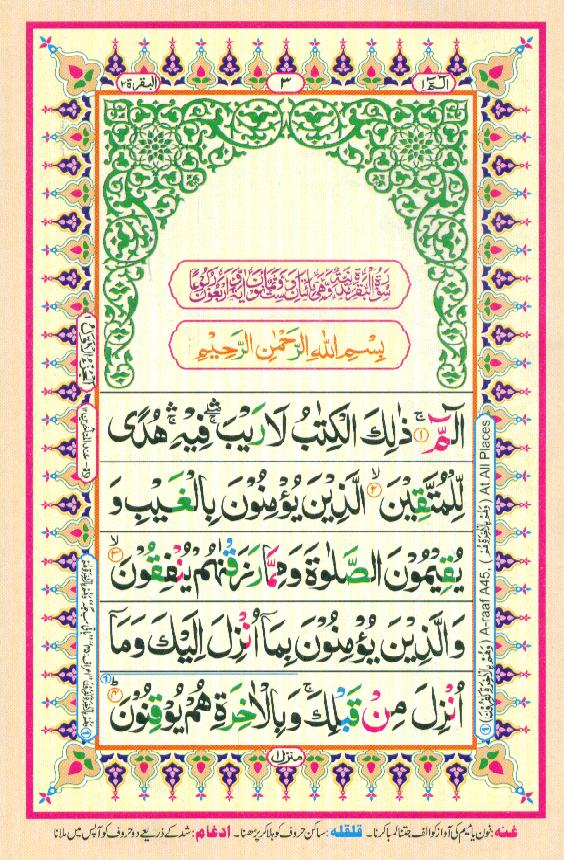 الٓمّٓ ١
٣
البقرة ٢
سُوْرَةُ الْبَقَرَةِ مَدَنِيَّةٌ وَّهِيَ مِائَتَانِ وَسِتٌّ وَّثَمَانُوْنَ اٰيَةً وَّاَرْبَعُوْنَ رُكُوْعًا
بِسْمِ اللهِ الرَّحْمٰنِ الرَّحِيْمِ
الٓمّٓ ۚ ﴿١﴾ ذٰلِكَ الْكِتٰبُ لَا رَيْبَ ۛۖ فِيْهِ ۛۚ هُدًى
لِّلْمُتَّقِيْنَ ۙ ﴿٢﴾ الَّذِيْنَ يُؤْمِنُوْنَ بِالْغَيْبِ وَ
يُقِيْمُوْنَ الصَّلٰوةَ وَمِمَّا رَزَقْنٰهُمْ يُنْفِقُوْنَ ۙ ﴿٣﴾
وَالَّذِيْنَ يُؤْمِنُوْنَ بِمَآ اُنْزِلَ اِلَيْكَ وَمَآ
اُنْزِلَ مِنْ قَبْلِكَ ۚ وَبِالْاٰخِرَةِ هُمْ يُوْقِنُوْنَ ؕ ﴿٤﴾
منزل ١
(وَهُمْ بِالْاٰخِرَةِ كٰفِرُوْنَ) A-raaf A45. (وَهُمْ بِالْاٰخِرَةِ هُمْ) At All Places
غنه: نون یا میم کی آواز کو الف جتنا لمبا کرنا۔ قلقله: ساکن حروف کو ہلا کر پڑھنا۔ ادغام: شد کے ذریعے دو حروف کو آپس میں ملانا